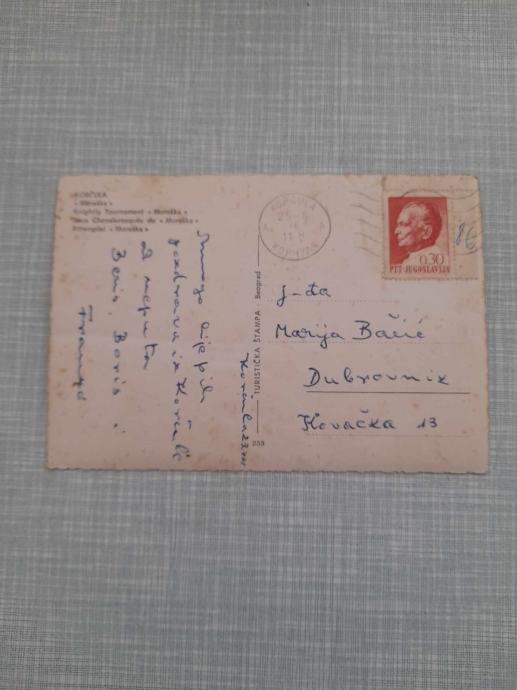 KORČULA
« Moreška »
Knightly Tournament « Moreška »
Jeux Chevaleresques de « Moreška »
Ritterspiel « Moreška »
Mnogo lijepih
pozdrava iz Korčule
Beris, Boris i
TURISTIČKA ŠTAMPA - Beograd
253
KORČULA
КОРЧУЛА
0.30
PTT JUGOSLAVIJA
86
g-đa
Marija Bačić
Dubrovnik
Kovačka 13